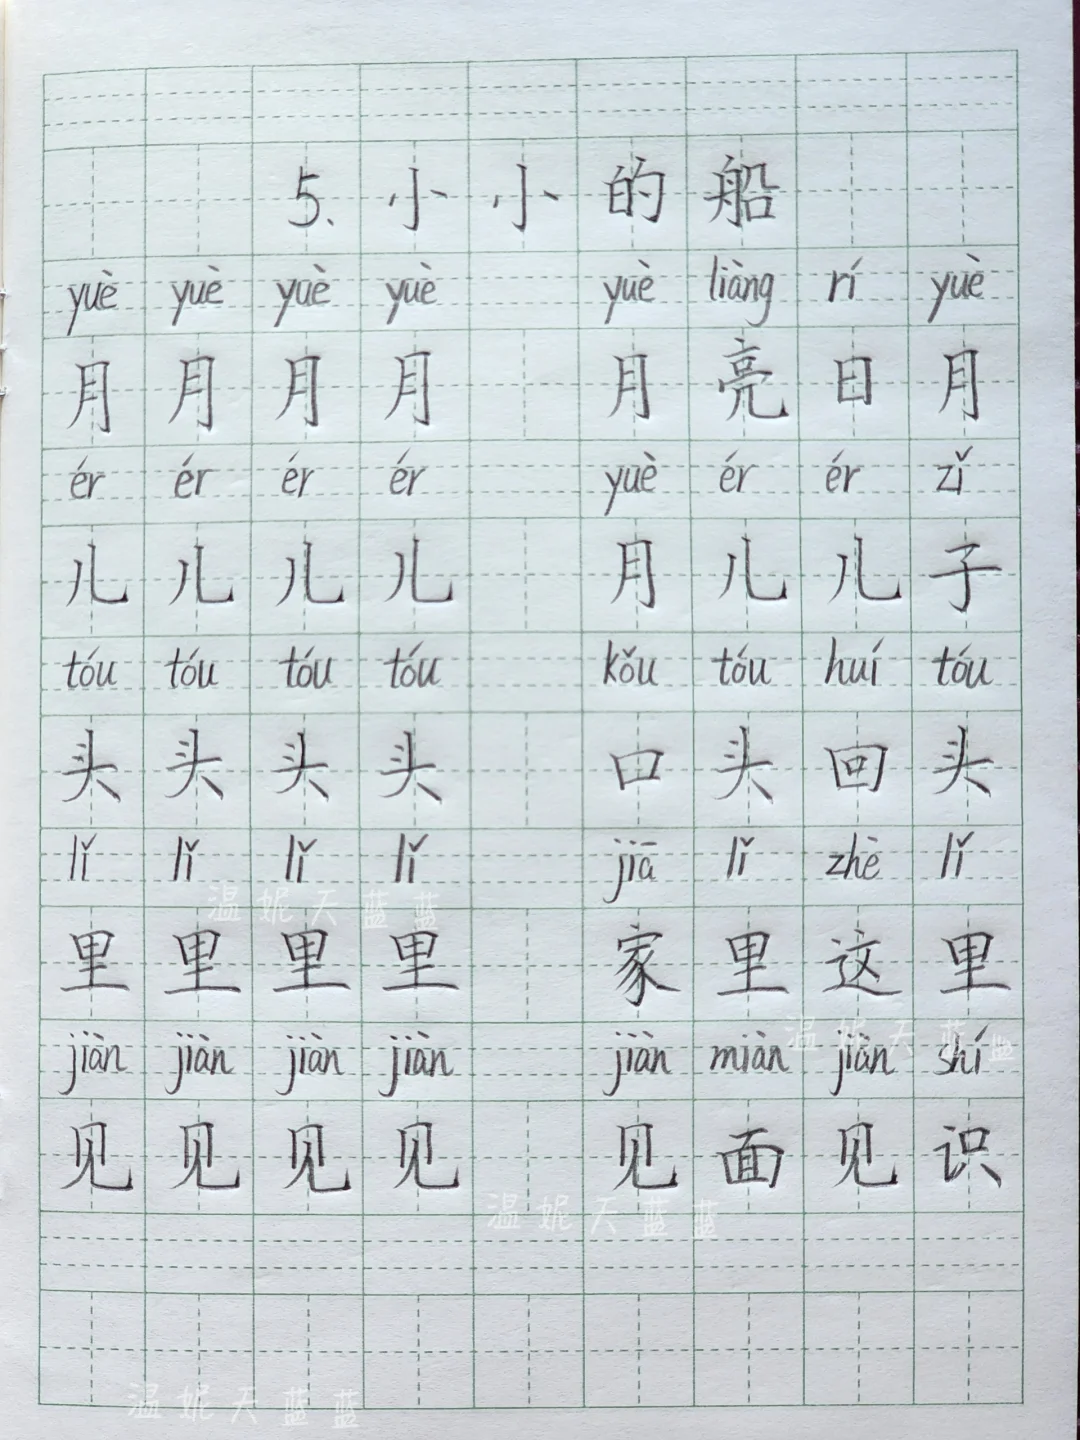 5.小小的船
yuè yuè yuè yuè yuè liàng rí yuè
月 月 月 月 月 亮 日 月
ér ér ér ér yuè ér ér zǐ
儿 儿 儿 儿 月 儿 儿 子
tóu tóu tóu tóu kǒu tóu huí tóu
头 头 头 头 口 头 回 头
lǐ lǐ lǐ lǐ jiā lǐ zhè lǐ
里 里 里 里 家 里 这 里
温妮天蓝蓝
jiàn jiàn jiàn jiàn jiàn miàn jiàn shí
温妮天蓝蓝
见 见 见 见 见 面 见 识
温妮天蓝蓝
温妮天蓝蓝